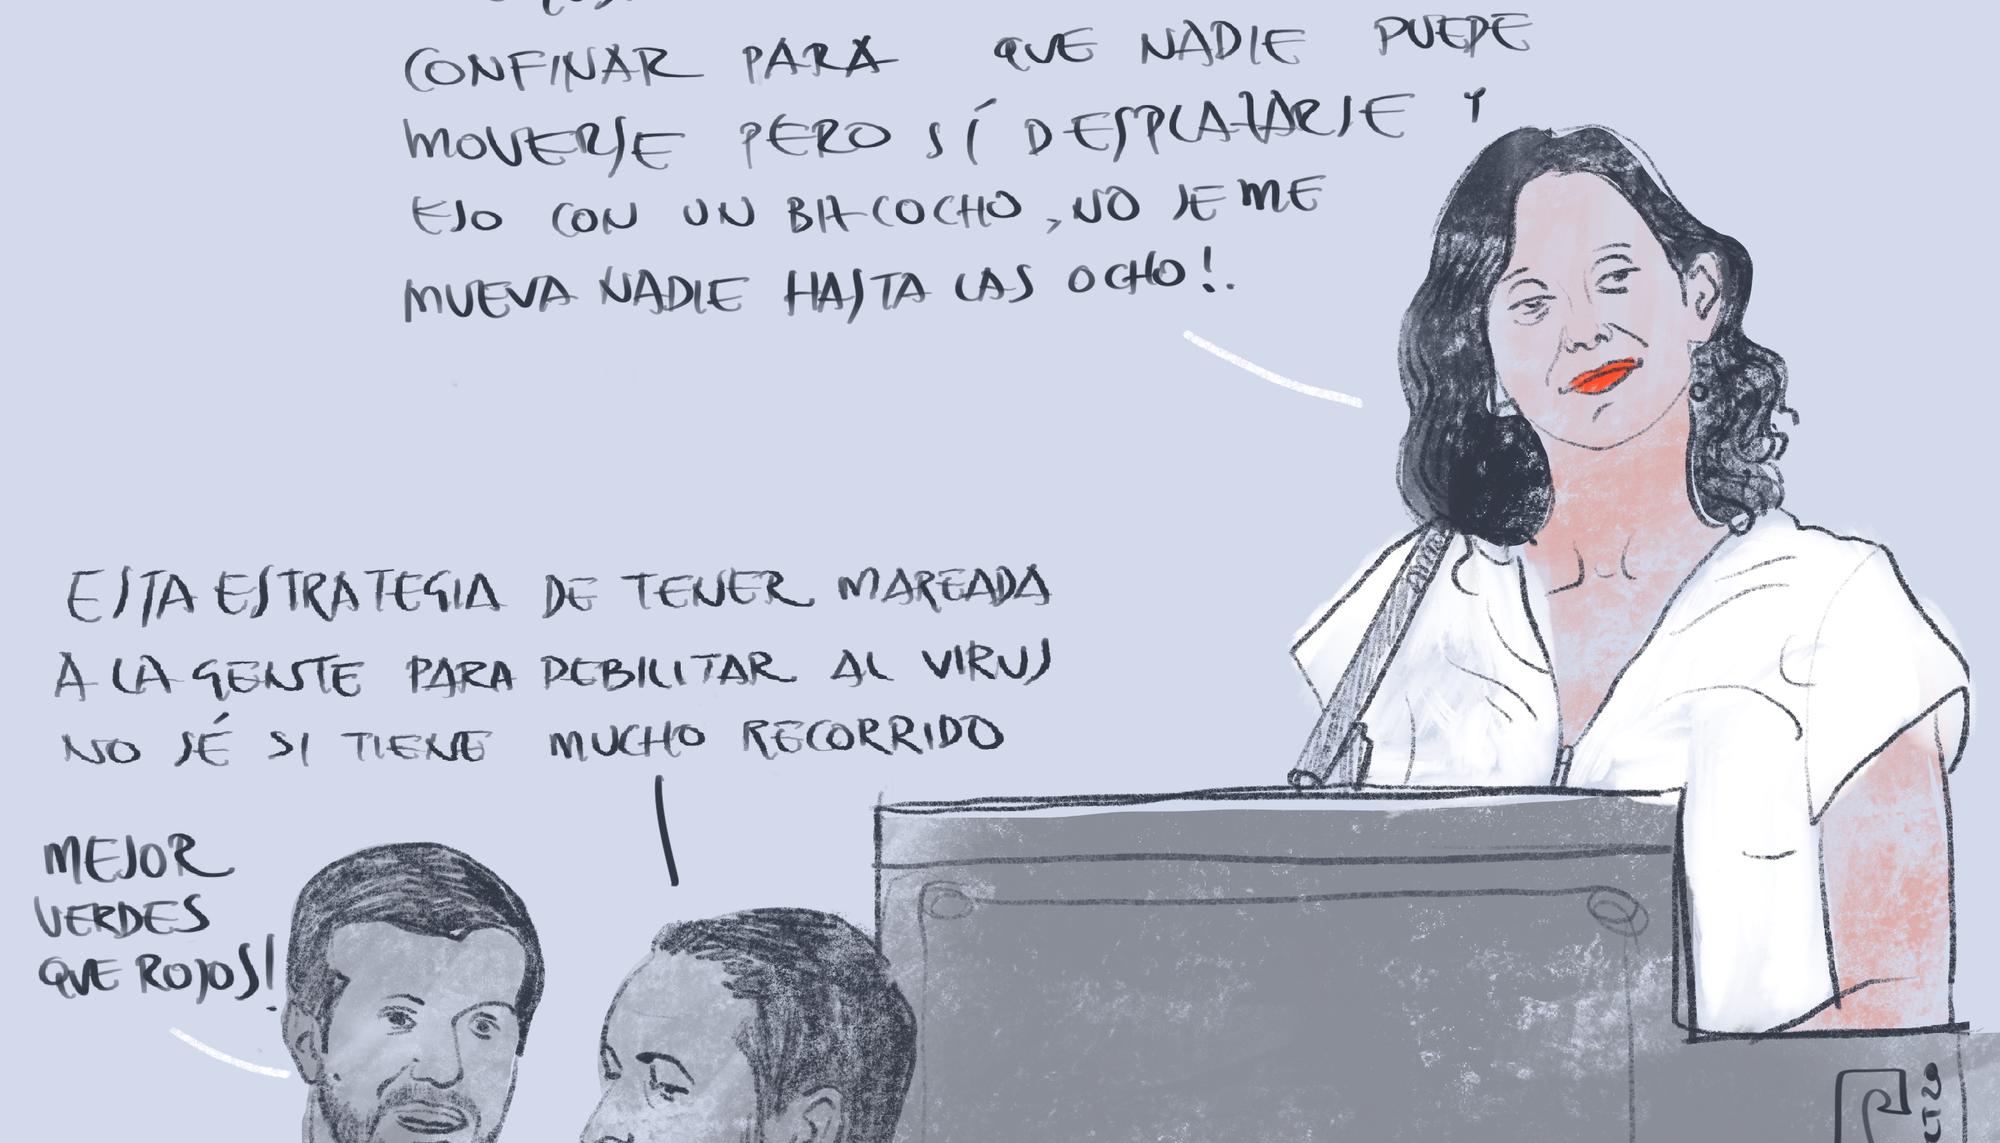 CONFINAR PARA QUE NADIE PUEDE
MOVERSE PERO SÍ DESPLAZARSE Y
ESO CON UN BIZCOCHO, NO SE ME
MUEVA NADIE HASTA LAS OCHO!.
ESTA ESTRATEGIA DE TENER MAREADA
A LA GENTE PARA DEBILITAR AL VIRUS
NO SÉ SI TIENE MUCHO RECORRIDO
MEJOR
VERDES
QUE ROJOS!